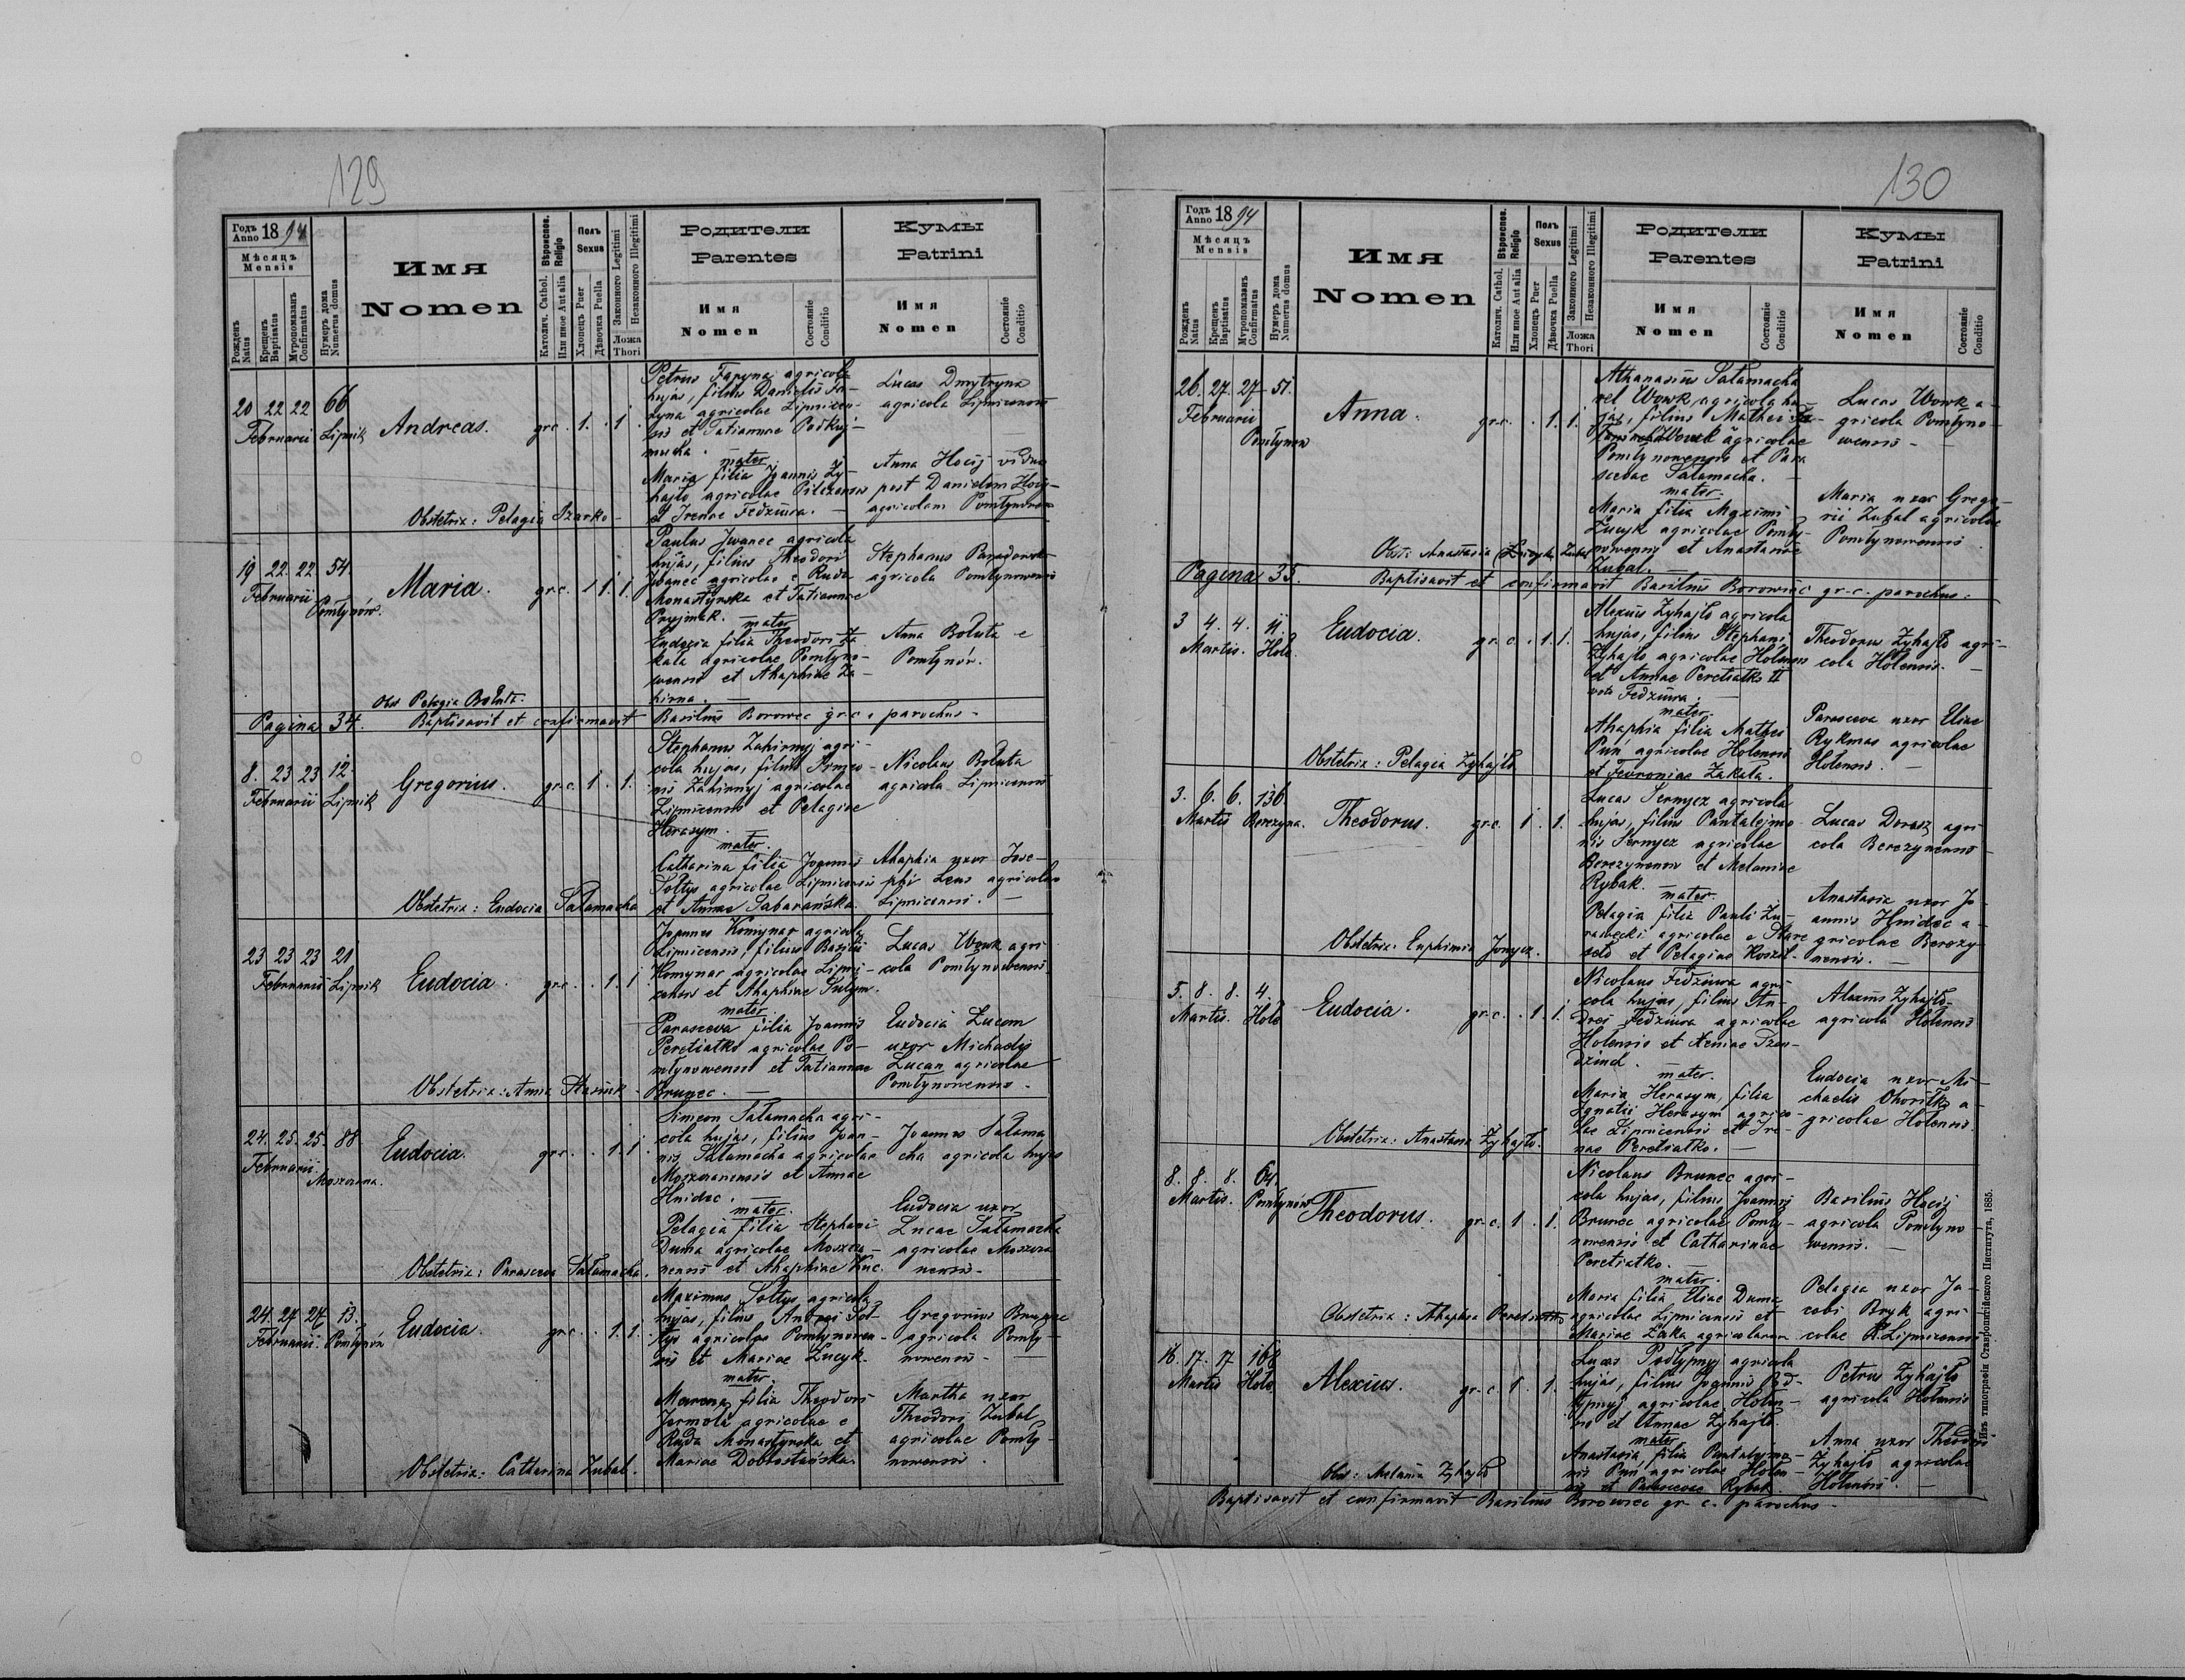 129
Годъ Anno 1894
Мѣсяцъ
Mensis
Рожденъ Natus
Крещенъ Baptisatus
Мѵропомазанъ Confirmatus
Нумеръ дома Numerus domus
Имя
Nomen
Вѣроиспов. Religio
Католич. Cathol.
Или иное Aut alia
Полъ
Sexus
Хлопецъ Puer
Дѣвочка Puella
Законного Legitimi
Незаконного Illegitimi
Ложа
Thori
Родители
Parentes
Имя
Nomen
Состояніе
Conditio
Кумы
Patrini
Имя
Nomen
Состояніе
Conditio
20 22 22 66
Februarii Lipnik
Andreas. gr.c. 1. 1.
Petrus agricola
hujas, filius Danielis
agricolae Lipnicen-
sis et Tatiannae
mater
Maria filia Joannis Zy-
hajło agricolae
et Irenae Fedziura.
Lucas Dmytryna
agricola Lipnicensis
Anna Hocij vidua
post Danielem Hocij
agricolam Pomłynoven
Obstetrix: Pelagia Szarko
19 22 22 54
Februarii Pomłynów.
Maria. gr.c. 1. 1.
Paulus Iwanec agricola
hujas, filius Theodori
Iwanec agricolae e Ruda
Monastyrska et Tatiannae
Pryjmak. mater
Eudocia filia Theodori Za-
kała agricolae Pomłyno-
wensis et Ahaphiae Za-
hirna.
Stephanus
agricola Pomłynowensis
Anna Bołuta e
Pomłynów.
Obs Pelagia Bołuta.
Pagina 34. Baptisavit et confirmavit Basilius Borowiec gr. c. parochus
8. 23 23 12
Februarii Lipnik
Gregorius. gr.c. 1. 1.
Stephanus Zahirnyj agri-
cola hujas, filius
Zahirnyj agricolae
Lipnicensis et Pelagiae
Herasym.
mater.
Catharina filia Joannis
Sołtys agricolae Lipnicensis
et Annae Sabarańska.
Nicolaus Bołuta
agricola Lipnicensis
Ahaphia uxor Jose-
phi Lens agricolae
Lipnicensis.
Obstetrix: Eudocia Sałamacha
23 23 23 21
Februarii Lipnik
Eudocia. gr.c. 1. 1
Joannes Komynar agricola
Lipnicensis, filius Basilii
Komynar agricolae Lipni-
censis et Ahaphiae
mater
Parasceva filia Joannis
Peretiatko agricolae Po-
młynowensis et Tatiannae
Brunec.
Lucas Wowk agri-
cola Pomłynowensis
Eudocia Lucan
uxor Michaelis
Lucan agricolae
Pomłynowensis.
Obstetrix: Anna
24. 25. 25. 88
Februarii Moszczana.
Eudocia. gr.c. 1. 1
Simeon Sałamacha agri-
cola hujas, filius Joan-
nis Sałamacha agricolae
Moszczanensis et Annae
Hnidec.
mater.
Pelagia filia Stephani
Duma agricolae Moszcza-
nensis et Ahaphiae Kuc.
Joannes Sałama
cha agricola hujas
Eudocia uxor
Lucae Sałamacha
agricolae Moszcza
nensis
Obstetrix: Parasceva Sałamacha.
24. 27 27 13.
Februarii. Pomłynów
Eudocia. gr.c. 1. 1.
Maximus Sołtys agricola
hujas, filius Andrei Soł-
tys agricolae Pomłynowen-
sis et Mariae Lucyk.
mater.
filia Theodori
Jarmola agricolae e
Ruda Monastyrska et
Mariae Dobrostańska.
Gregorius Brunec
agricola Pomły-
nowensis
Martha uxor
Theodori Zubal
agricolae Pomły-
nowensis.
Obstetrix: Catharina Zubal.
130
Годъ Anno 1894
Мѣсяцъ
Mensis
Рожденъ Natus
Крещенъ Baptisatus
Мѵропомазанъ Confirmatus
Нумеръ дома Numerus domus
Имя
Nomen
Вѣроиспов. Religio
Католич. Cathol.
Или иное Aut alia
Полъ
Sexus
Хлопецъ Puer
Дѣвочка Puella
Законного Legitimi
Незаконного Illegitimi
Ложа
Thori
Родители
Parentes
Имя
Nomen
Состояніе
Conditio
Кумы
Patrini
Имя
Nomen
Состояніе
Conditio
26. 27. 27 51.
Februarii Pomłynów
Anna. gr.c. 1. 1.
Athanasius Sałamacha
vel Wowk agricola hu-
jas, filius Mathei
Wowk agricolae
Pomłynowensis et Para
scevae Sałamacha.
mater.
Maria filia Maximi
Lucyk agricolae Pomły-
nowensis et Anastasiae
Zubal.
Lucas Wowk a-
gricola Pomłyno-
wensis
Maria uxor Grego-
rii Zubal agricolae
Pomłynowensis
Obst: Anastasia Zubal
Pagina 35. Baptisavit et confirmavit Basilius Borowiec gr.c. parochus.
3 4. 4. 11.
Martis. Hole.
Eudocia. gr.c. 1. 1.
Alexius Zyhajło agricola
hujas, filius Stephani
Zyhajło agricolae Holensis
et Annae Peretiatko II
voto Fedziura.
mater.
Ahaphia filia Mathei
Puń agricolae Holensis
et Fevroniae Zakała.
Theodorus Zyhajło agri-
cola Holensis.
Parasceva uxor Eliae
Rykmas agricolae
Holensis.
Obstetrix: Pelagia Zyhajło
3. 6. 6. 136
Martis Berezyna.
Theodorus. gr.c. 1. 1.
Lucas Sernycz agricola
hujas, filius Pantalejmo-
nis Sernycz agricolae
Berezynensis et Melaniae
Rybak.
mater.
Pelagia filia Pauli Zu-
rawecki agricolae e Stare
seło et Pelagiae
Lucas Dorosz agri-
cola Berezynensis
Anastasia uxor Jo-
annis Hnidec a-
gricolae Berezy-
nensis.
Obstetrix: Euphimia
5. 8. 8. 4.
Martis. Hole
Eudocia. gr.c. 1. 1.
Nicolaus Fedziura agri-
cola hujas, filius An-
drei Fedziura agricolae
Holensis et Xeniae
mater.
Maria Herasym, filia
Ignatii Herasym agrico-
lae Lipnicensis et Ire-
nae Peretiatko.
Alexius Zyhajło
agricola Holensis
Eudocia uxor Mi-
chaelis a-
gricolae Holensis.
Obstetrix: Anastasia Zyhajło.
8. 8. 8. 64.
Martis. Pomłynów
Theodorus. gr.c. 1. 1.
Nicolaus Brunec agri-
cola hujas, filius Joannis
Brunec agricolae Pomły-
nowensis et Catharinae
Peretiatko.
mater.
Maria filia Eliae Duma
agricolae Lipnicensis et
Mariae Zaka agricolarum
Basilius Hocij
agricola Pomłyno
wensis.
Pelagia uxor Ja-
cobi Bryk agri-
colae Lipnicensis
Obstetrix: Ahaphia Peretiatko
16. 17. 17 168
Martis Hole
Alexius. gr.c. 1. 1.
Lucas Podłypnyj agricola
hujas, filius Joannis Pod-
łypnyj agricolae Holen-
sis et Annae Zyhajło.
mater
Anastasia filia Pantalejmo-
nis Puń agricolae Holen-
sis et Parascevae Rybak.
Petrus Zyhajło
agricola Holensis
Anna uxor Theodori
Zyhajło agricolae
Holensis.
Obs: Melania Zyhajło
Baptisavit et confirmavit Basilius Borowiec gr. c. parochus
Изъ типографіи Ставропигійского Института, 1885.